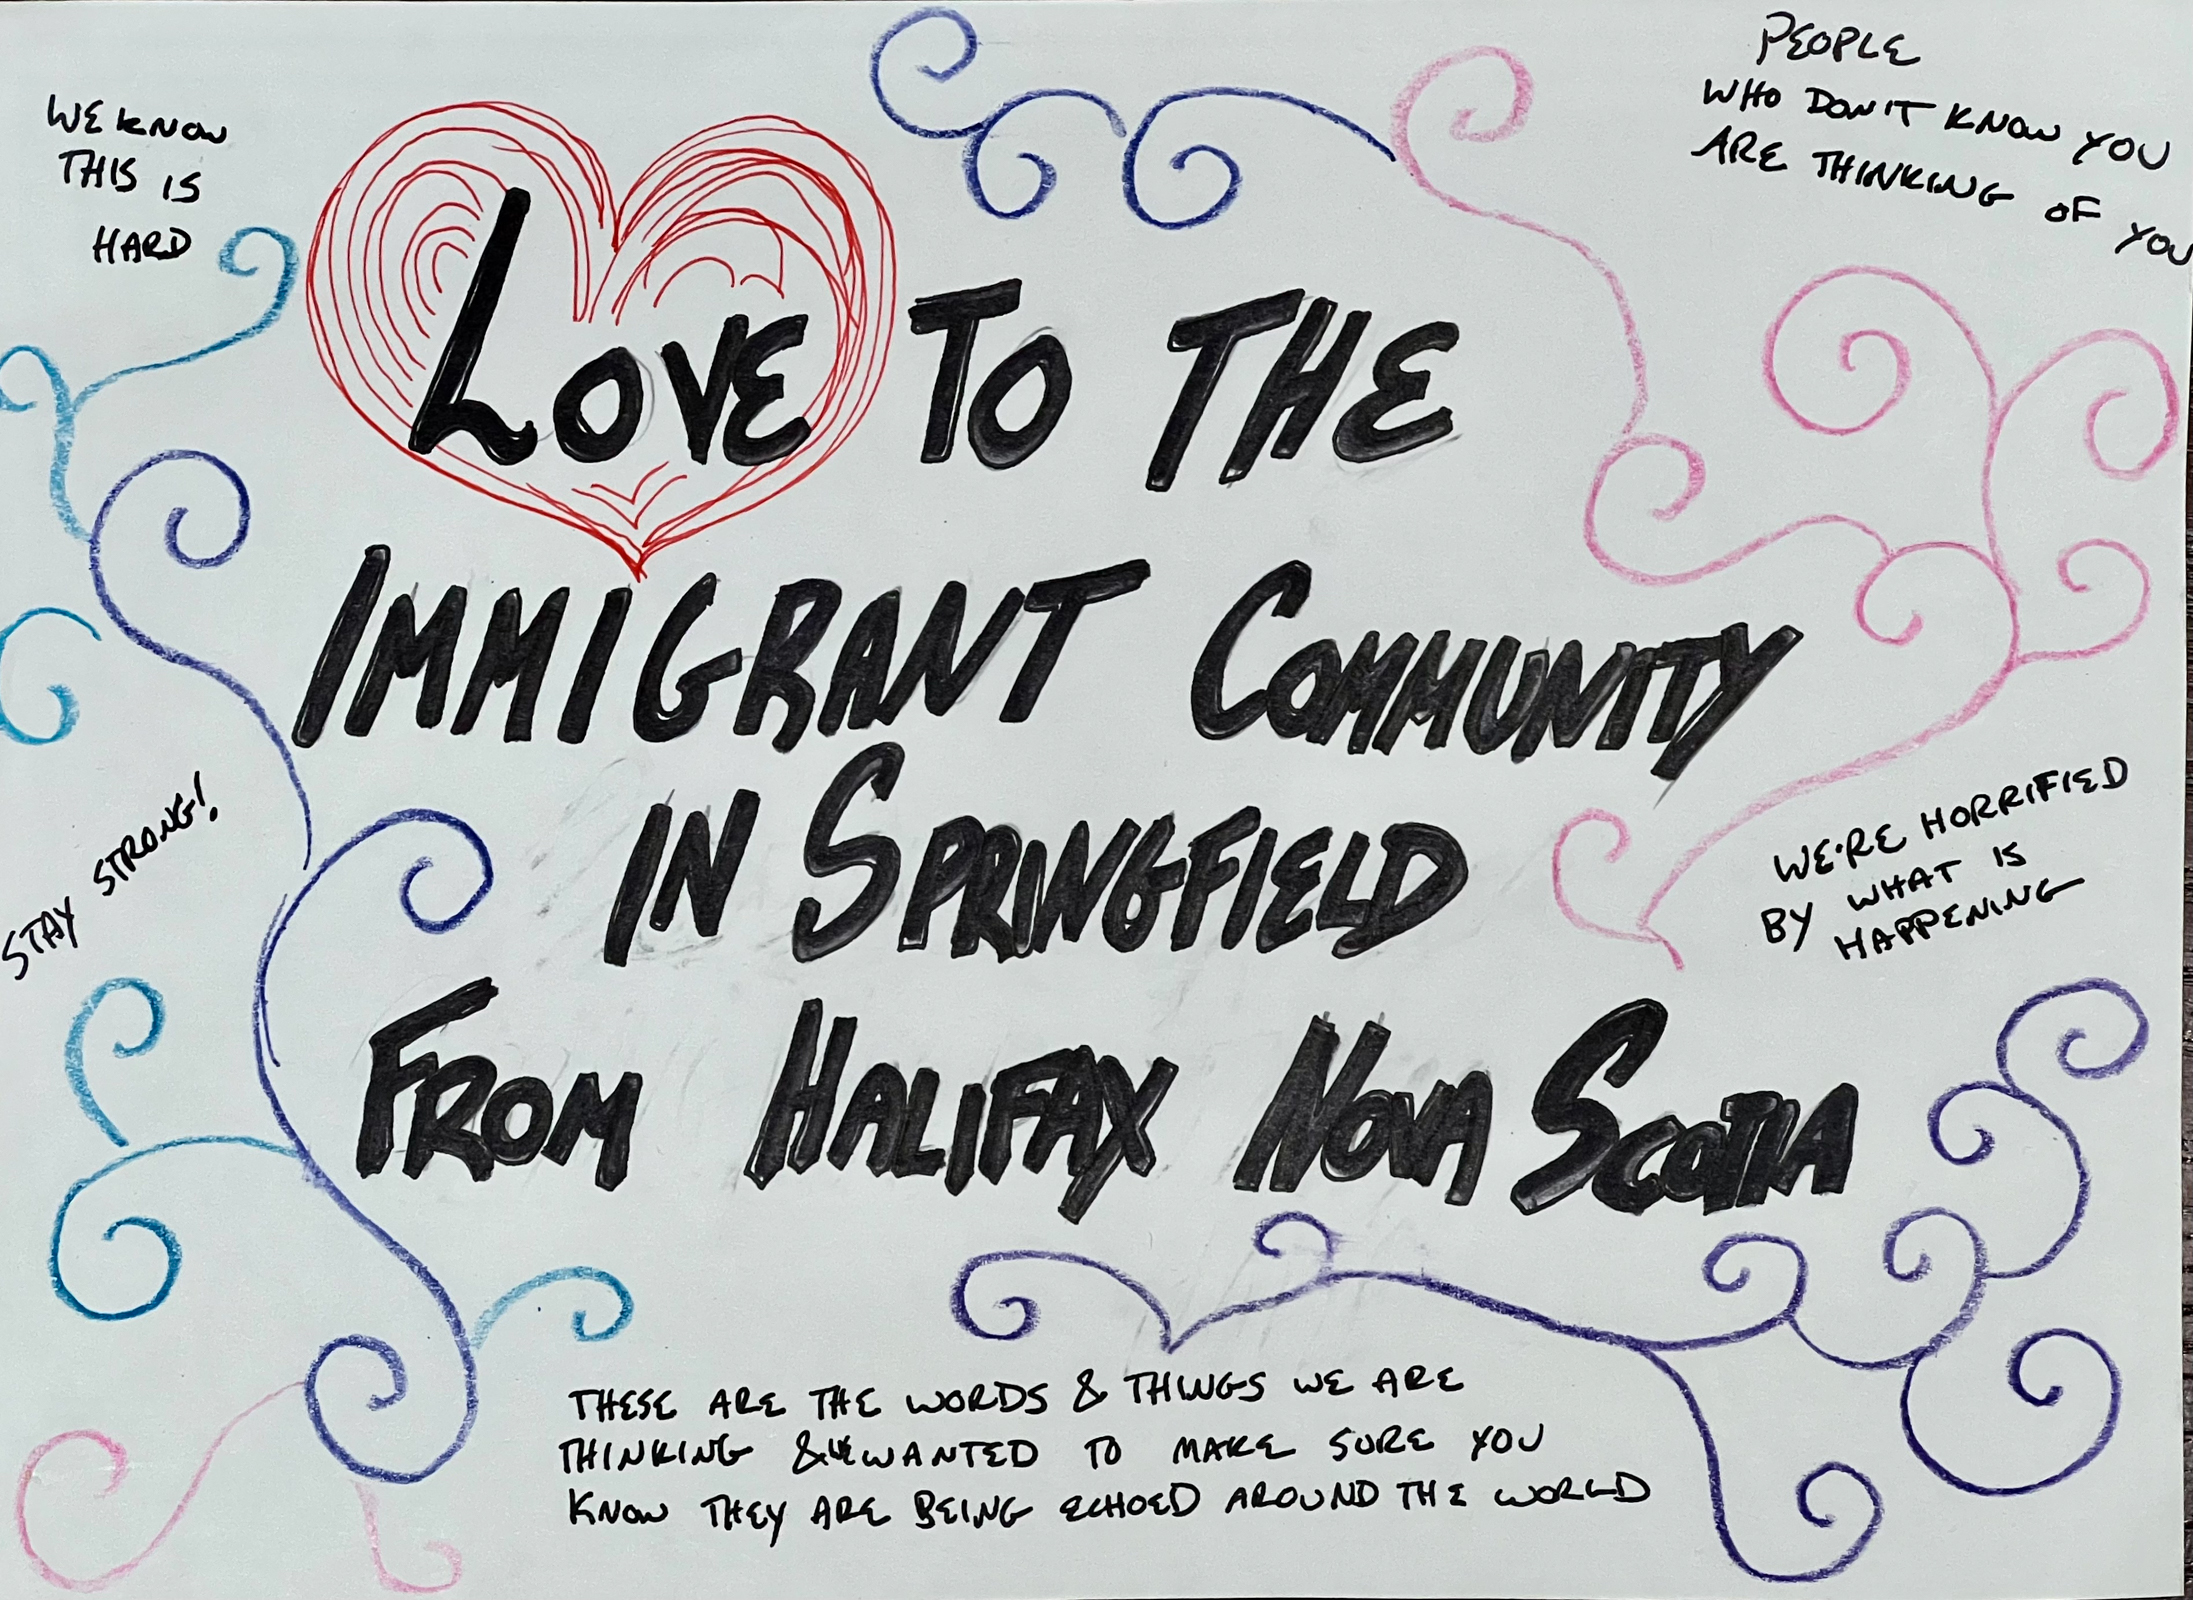 WE KNOW
THIS IS
HARD
PEOPLE
WHO DON'T KNOW YOU
ARE THINKING OF YOU
LOVE TO THE
IMMIGRANT COMMUNITY
IN SPRINGFIELD
FROM HALIFAX NOVA SCOTIA
STAY STRONG!
WE'RE HORRIFIED
BY WHAT IS
HAPPENING
THESE ARE THE WORDS & THINGS WE ARE
THINKING & WE WANTED TO MAKE SURE YOU
KNOW THEY ARE BEING ECHOED AROUND THE WORLD